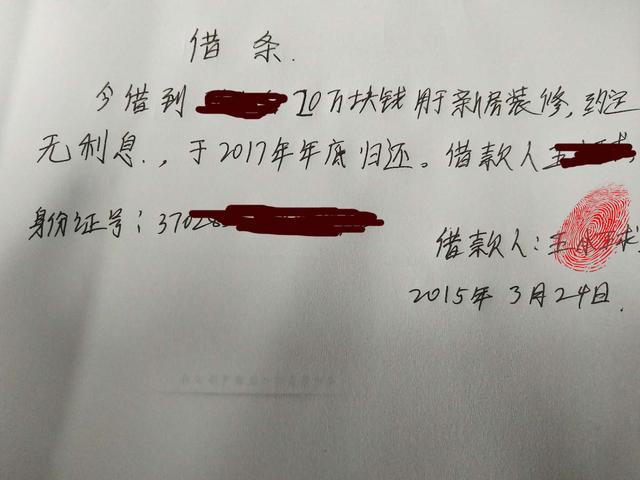 借条.
今借到 20万块钱用于新房装修,约定
无利息.,于2017年年底归还。借款人王
身份证号:3702
借款人:王
2015年3月24日.